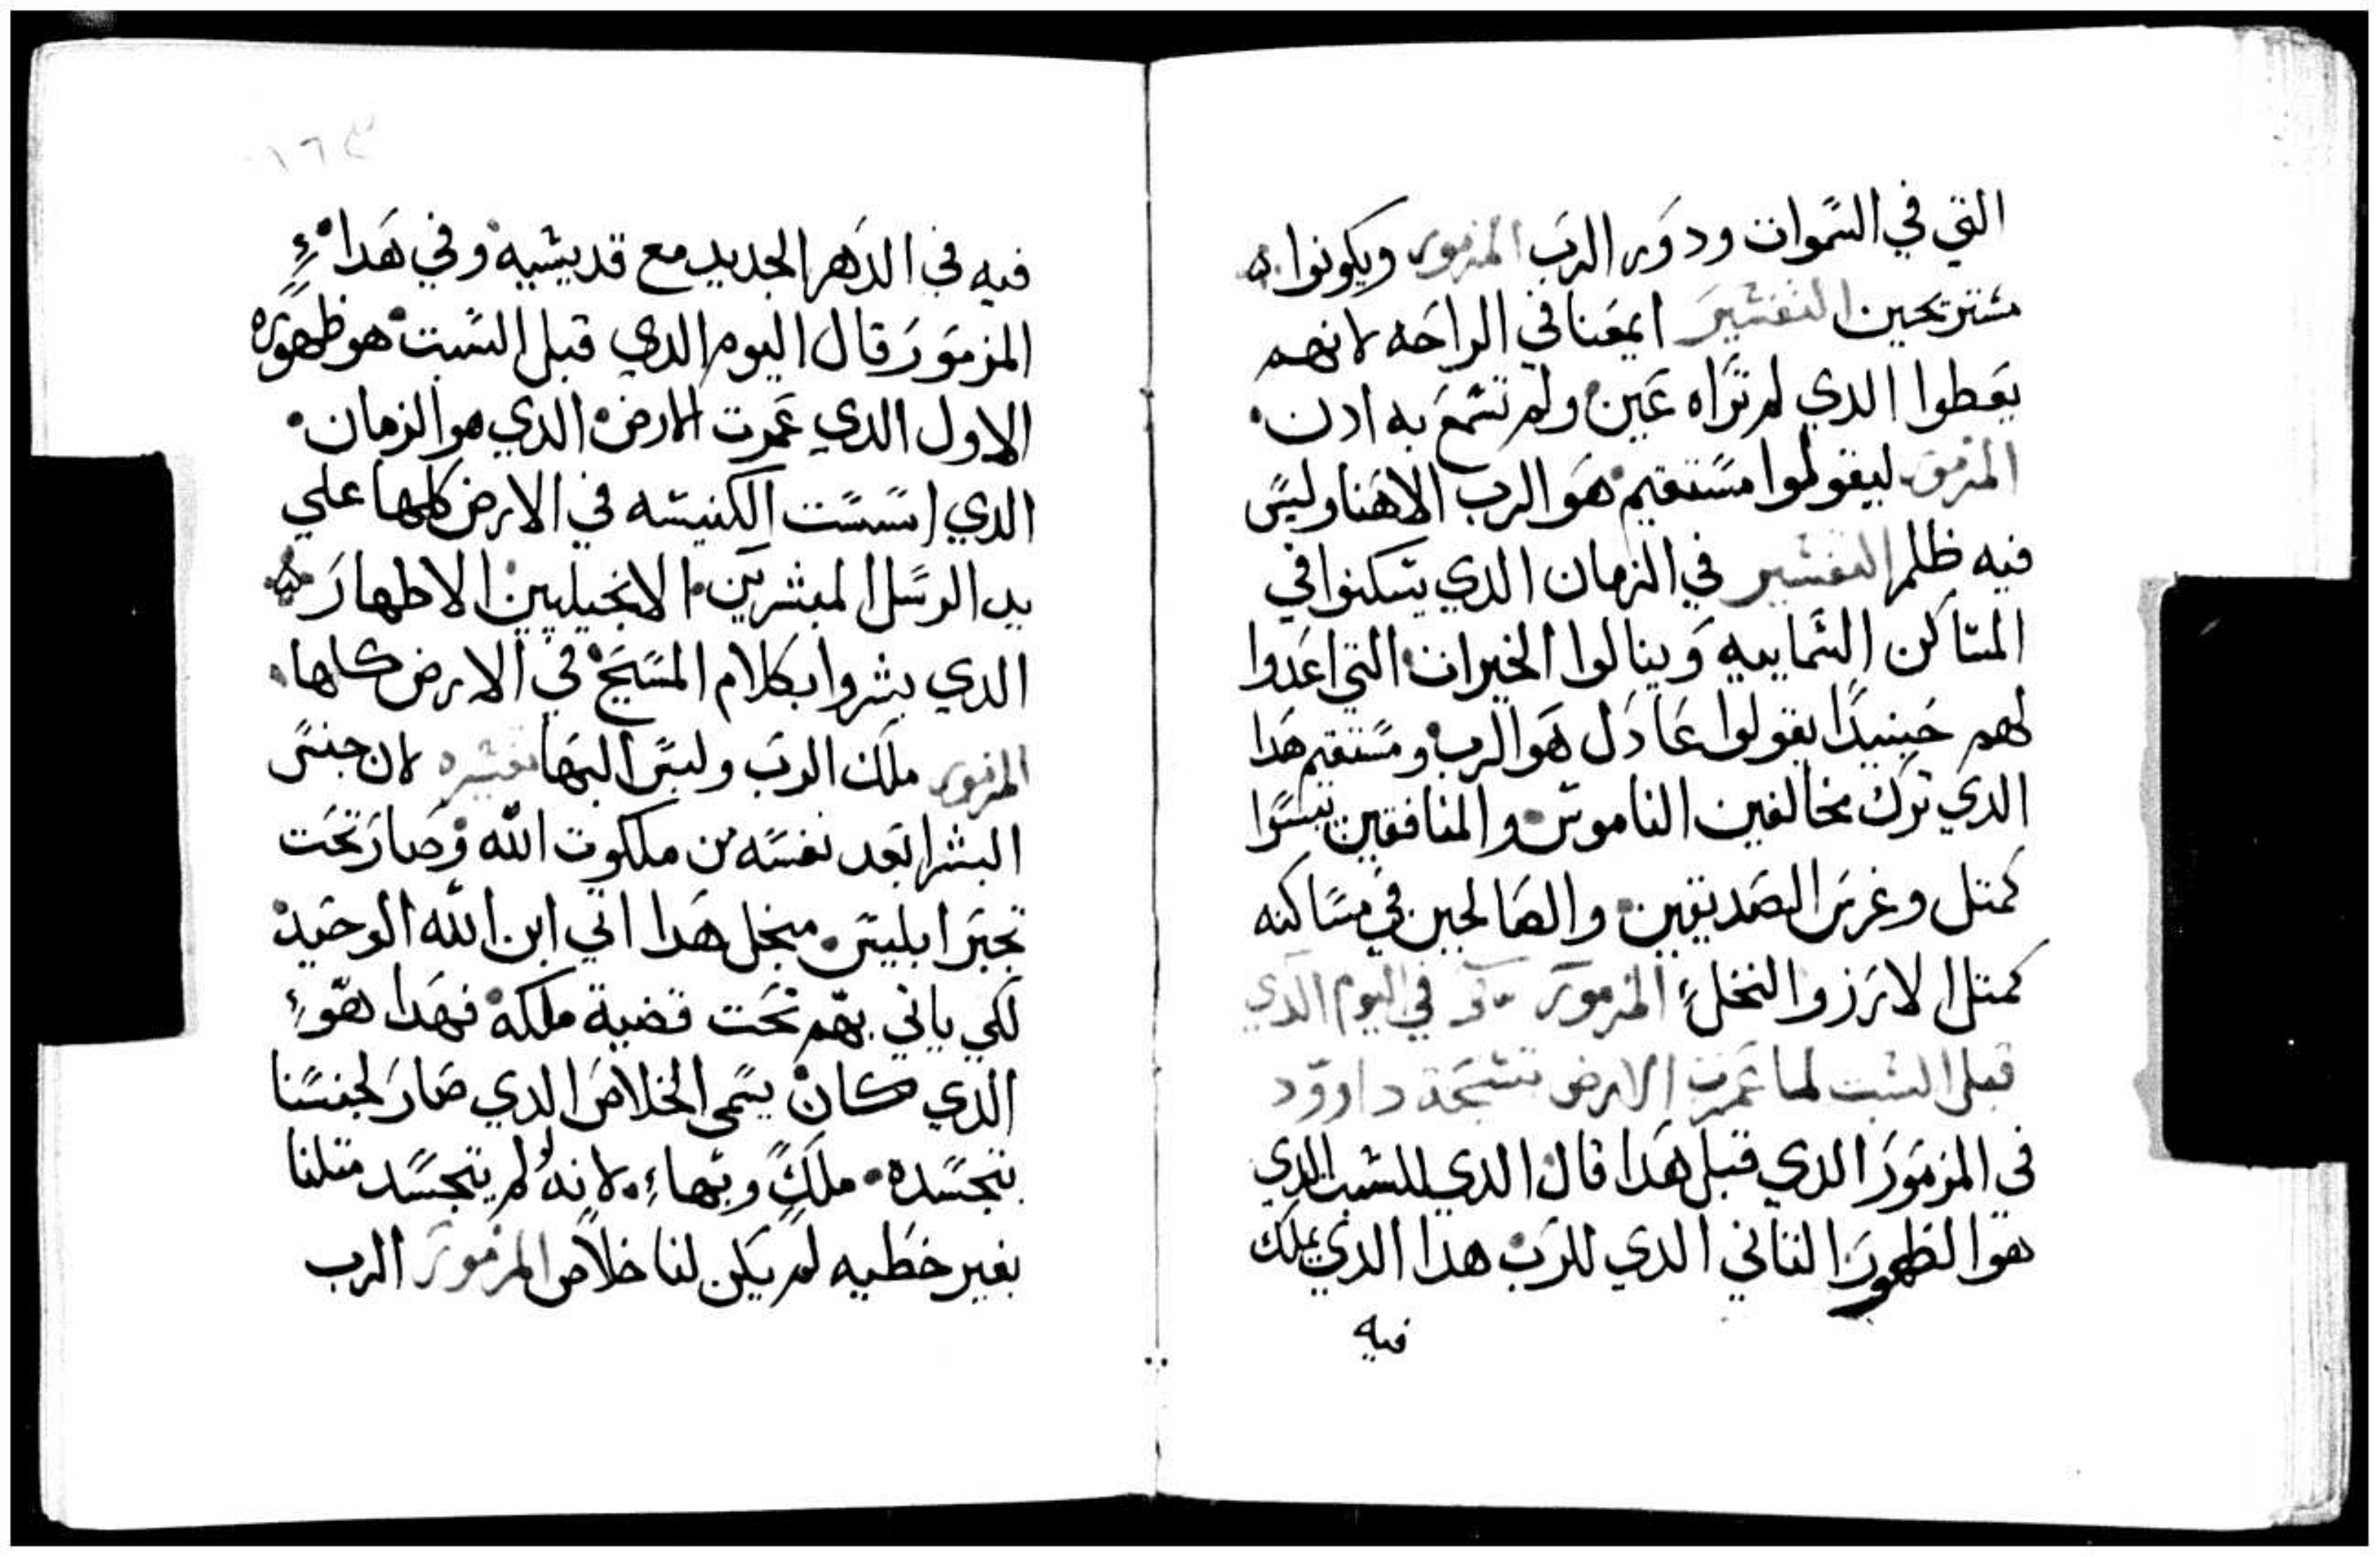 التي في السموات ودور الرب المزمور ويكونوا
مستريحين التفسير ايمعنا في الراحه لانهم
يعطوا الدي لم تراه عين ولم تسمع به ادن
المزمور ليقولوا مستقيم هو الرب الاهنا وليس
فيه ظلم التفسير في الزمان الدي يسكنوا في
المساكن السماييه وينالوا الخيرات التي اعدوا
لهم حينيدا يقولوا عادل هو الرب ومستقيم هدا
الدي ترك مخالفين الناموس والمنافقين يبسوا
كمتل وغرس الصديقين والصالحين في مساكنه
كمتل الارز والنخل المزمور في اليوم الدي
قبل السبت لما عمرت الارض تسبحة داوود
في المزمور الدي قبل هدا قال الدي للسبت الدي
هو الظهور التاني الدي للرب هدا الدي يملك
فيه
١٦٣
فيه في الدهر الجديد مع قديسيه وفي هدا
المزمور قال اليوم الدي قبل السبت هو ظهوره
الاول الدي عمرت الارض الدي هو الزمان
الدي اسست الكنيسه في الارض كلها علي
يد الرسل المبشرين الانجيليين الاطهار
الدي بشروا بكلام المسيح في الارض كلها
المزمور ملك الرب ولبس البها تفسيره لان جنس
البشر ابعد نفسه من ملكوت الله وصار تحت
تجبر ابليس منجل هدا اتي ابن الله الوحيد
لكي ياتي بهم تحت قضية ملكه فهدا هو
الدي كان يسمي الخلاص الدي صار لجنسنا
بتجسده ملك وبهاء لانه لم يتجسد متلنا
بغير خطيه لم يكن لنا خلاص المزمور الرب